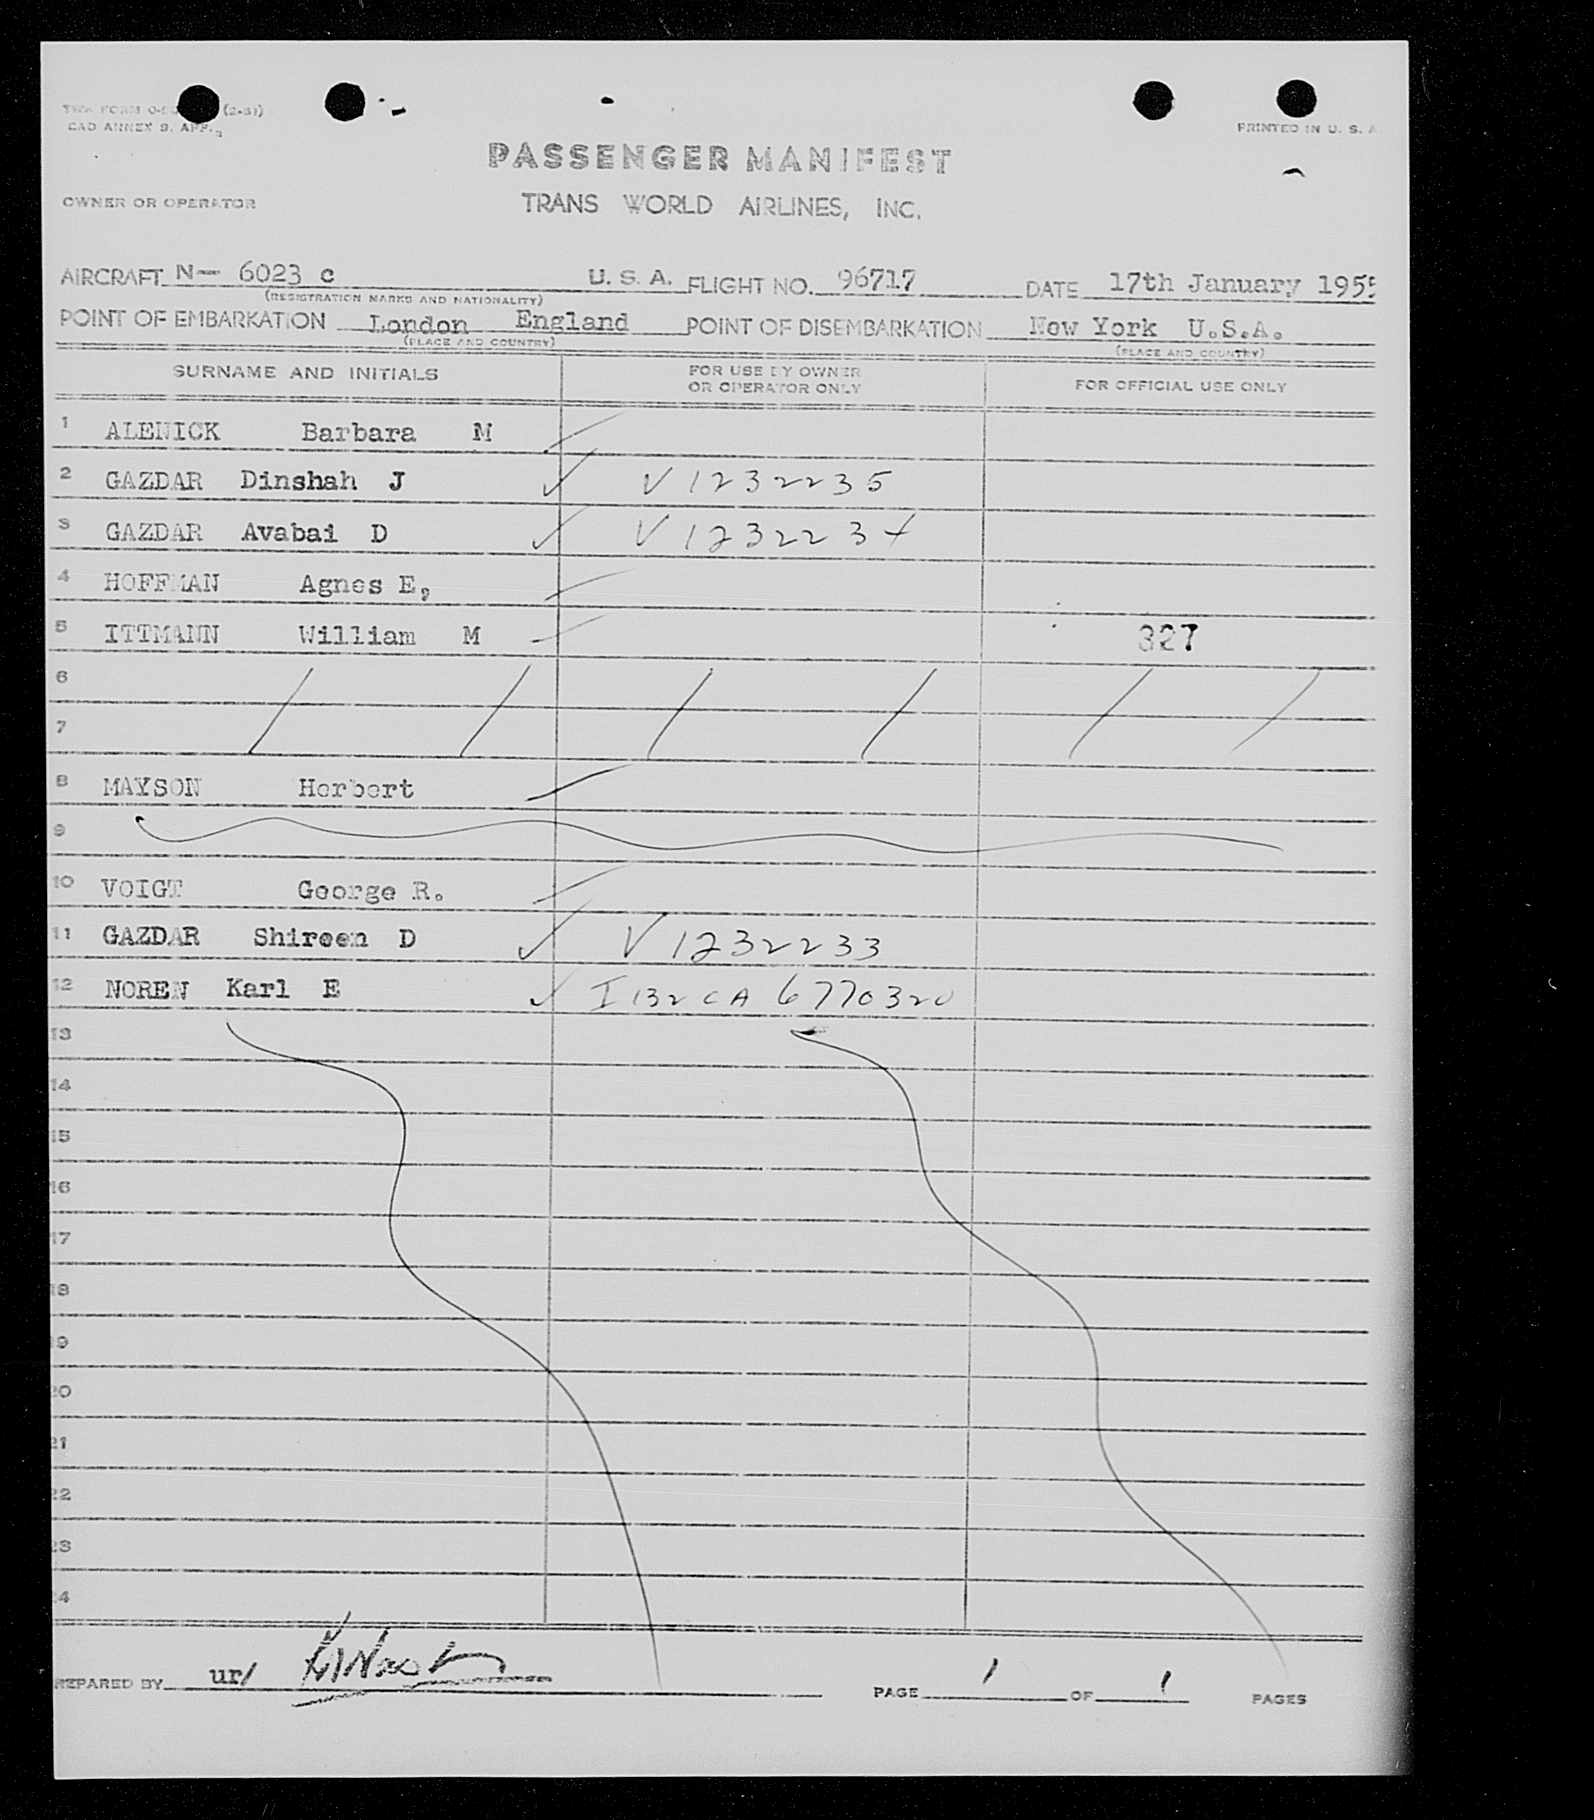 TWA FORM (2-51)
CAO ANNEX 9. APP.
PRINTED IN U. S. A
PASSENGER MANIFEST
OWNER OR OPERATOR
TRANS WORLD AIRLINES, INC.
AIRCRAFT N— 6023 c U. S. A. FLIGHT NO. 96717 DATE 17th January 1955
(REGISTRATION MARKS AND NATIONALITY)
POINT OF EMBARKATION London England POINT OF DISEMBARKATION New York U.S.A.
(PLACE AND COUNTRY) (PLACE AND COUNTRY)
SURNAME AND INITIALS FOR USE BY OWNER OR OPERATOR ONLY FOR OFFICIAL USE ONLY
1 ALENICK Barbara M
2 GAZDAR Dinshah J ✓ V 1232235
3 GAZDAR Avabai D ✓ V 1232234
4 HOFFMAN Agnes E,
5 ITTMANN William M 327
6
7
8 MAYSON Herbert
9
10 VOIGT George R.
11 GAZDAR Shireen D ✓ V 1232233
12 NOREN Karl E ✓ I 132 CA 6770320
13
14
15
16
17
18
19
20
21
22
23
24
REPARED BY ur/ PAGE 1 OF 1 PAGES